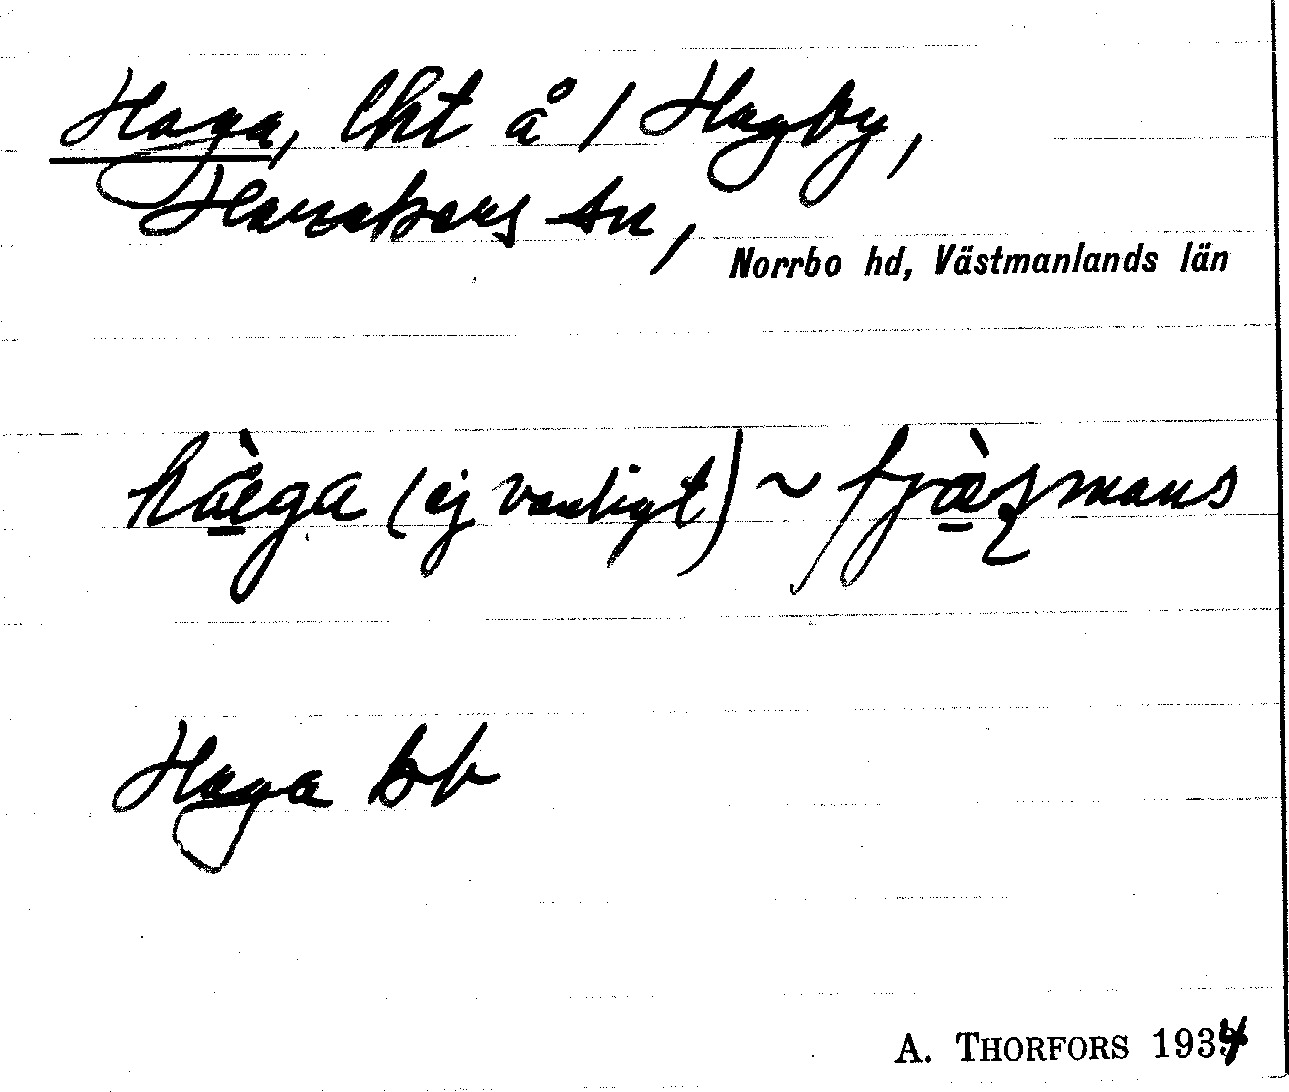 Haga, lht å 1 Hagby,
Haraker sn,
Norrbo hd, Västmanlands län
hàga (ej vanligt) ~
Haga bb
A. THORFORS 1934